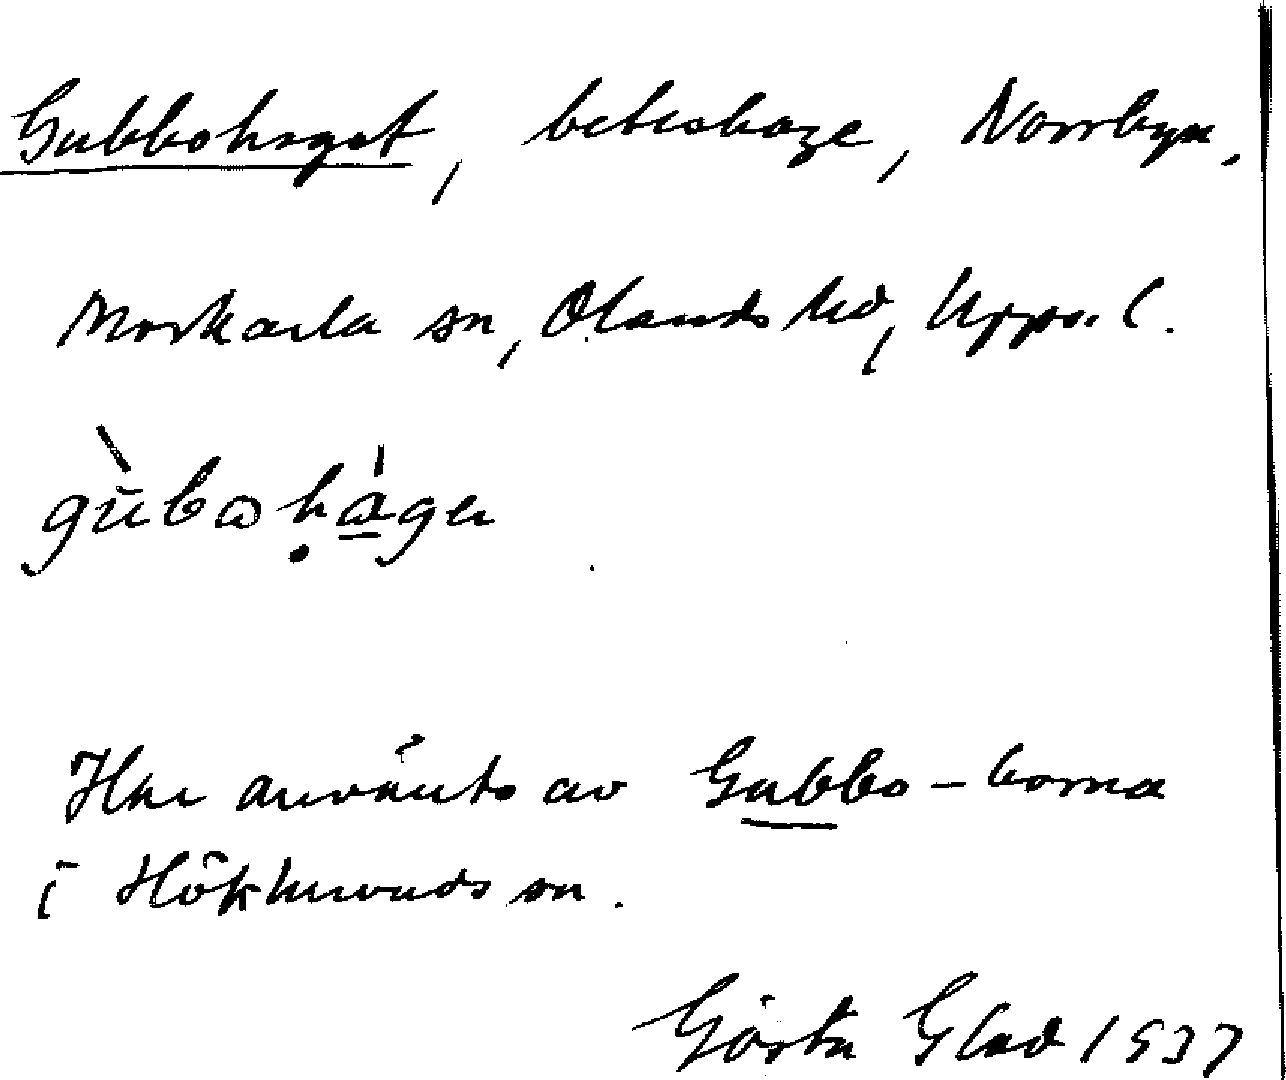 Gubbohaget, beteshage, Norrbyn,
Morkarla sn, Olands hd, Upps. l.
gùbωhágeɩ
Har använts av Gubbo-borna
i Hökhuvuds sn.
Gösta Glad 1937